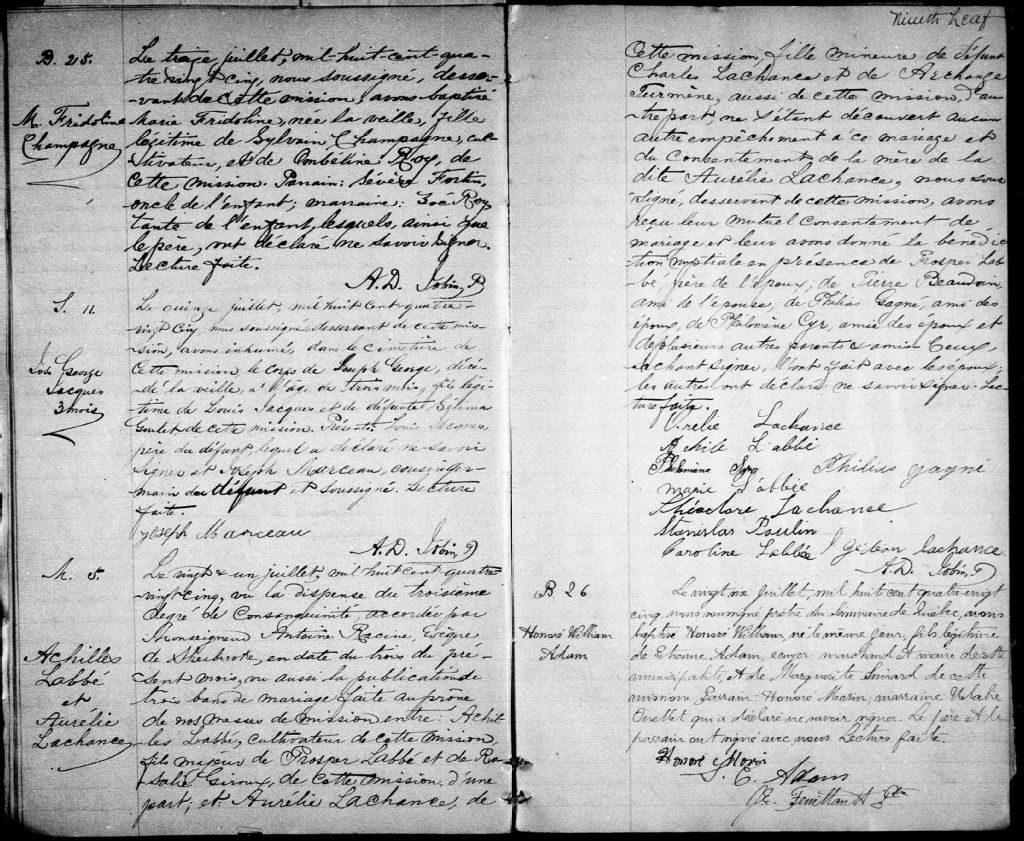 B. 25.
M. Fridoline
Champagne
Le treize juillet, mil huit cent qua-
tre vingt cinq, nous soussigné, desser-
vant de cette mission, avons baptisé
Marie Fridoline, née la veille, fille
légitime de Sylvain Champagne, cul-
tivateur, et de Ombéline Roy, de
cette mission. Parrain: Sévère Fortin,
oncle de l'enfant; marraine: Zoé Roy
tante de l'enfant, lesquels, ainsi que
le père, ont déclaré ne savoir signer.
Lecture faite.
A. D. Jobin, P
S. 11.
Jos. George
Jacques
3 mois
Le quinze juillet, mil huit cent quatre-
vingt cinq, nous soussigné, desservant de cette mis-
sion, avons inhumé, dans le cimetière de
cette mission le corps de Joseph George, décé-
dé la veille, à l'âge de trois mois, fils légi-
time de Louis Jacques et de défunte Sélima
Goulet de cette mission. Présents: Louis Jacques
père du défunt, lequel a déclaré ne savoir
signer et Joseph Marceau, cousin ger-
main du défunt et soussigné. Lecture
faite.
Joseph Marceau
A. D. Jobin, P
M. 5.
Achilles
Labbé
et
Aurélie
Lachance
Le vingt & un juillet, mil huit cent quatre
vingt cinq, vu la dispense du troisième
degré de consanguinité, accordée par
Monseigneur Antoine Racine, évêque
de Sherbrooke, en date du trois du pré-
sent mois, vu aussi la publication de
trois bans de mariage faite au prône
de nos messes de mission entre: Achil-
les Labbé, cultivateur de cette mission
fils majeur de Prosper Labbé et de Ro-
salie Giroux, de cette mission d'une
part; et Aurélie Lachance, de
Nineth Leaf
Cette mission, fille mineure de défunt
Charles Lachance et de Archange
Turmène, aussi de cette mission, d'au
tre part ne s'étant découvert aucun
autre empêchement à ce mariage et
du consentement de la mère de la
dite Aurélie Lachance, nous sous
signé, desservant de cette mission, avons
reçu leur mutuel consentement de
mariage et leur avons donné la bénédic
tion nuptiale en présence de Prosper Lab
bé, père de l'époux; de Pierre Beaudoin
ami de l'épouse, de Philias Gagné, ami des
époux, de Philomène Cyr, amie des époux et
de plusieurs autres parents & amis. Ceux,
sachant signer, l'ont fait avec les époux;
les autres ont déclaré ne savoir signer. Lec
ture faite.
Orelie Lachance
Achile Labbé
Philomène Philius gagné
marie Labbée
Théodore Lachanse
Stanislas Poulin
Caroline Labbée Gédéon lachance
A. D. Jobin, P
B 26
Honoré William
Adam
Le vingt six Juillet, mil huit cent quatre vingt
cinq nous soussigné prêtre du Séminaire de Québec, avons
baptisé Honoré William, né le même jour, fils légitime
de Etienne Adam, ecuyer, marchand et maire de cette
municipalité, et de Marguerite Simard de cette
mission. Parrain: Honoré Morin, marraine
Ouellet qui a déclaré ne savoir signer. Le père et le
parrain ont signé avec nous. Lecture faite.
Honoré Morin
E. Adam